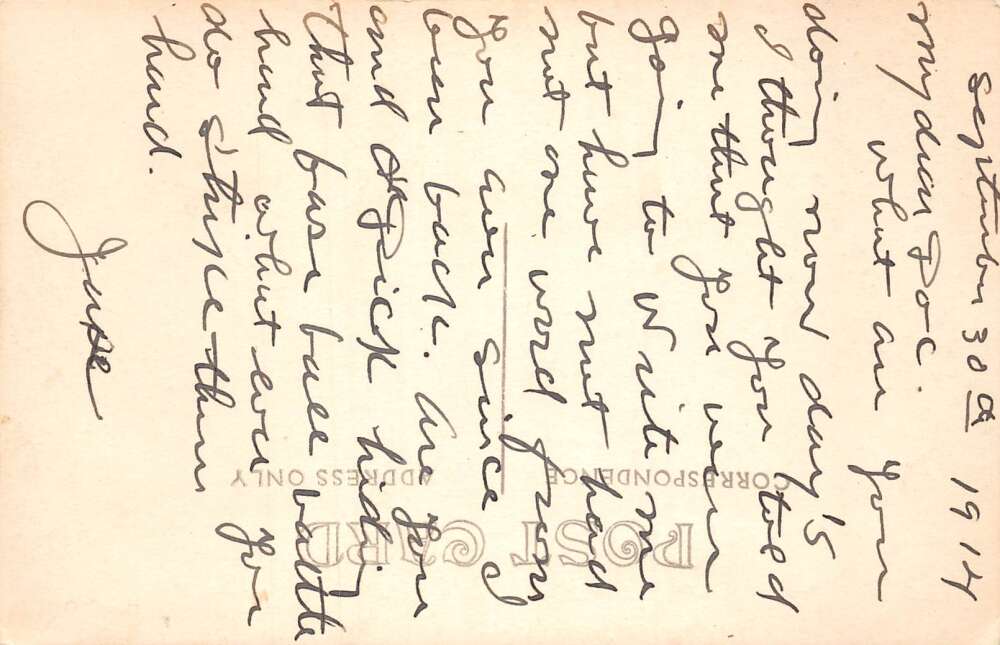 September 30th 1914
my dear Doc.
what are you
doing now day's
I thought you told
me that you were
going to write me
but have not had
not one word from
you ever since I
been back. are you
and Dick hid
that base ball battle
hend what ever you
do strike them
hard.
Juke
POST CARD
CORRESPONDENCE
ADDRESS ONLY